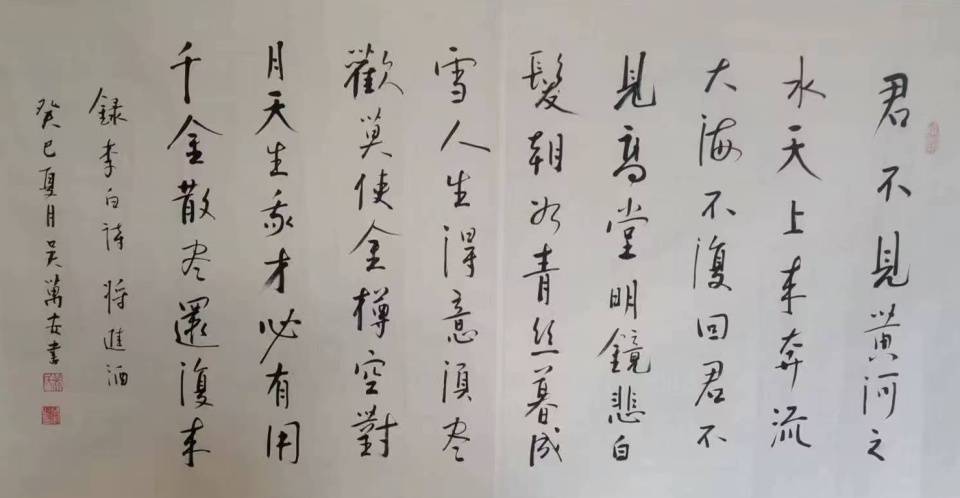 君不見黄河之
水天上来奔流
大海不復回君不
見高堂明鏡悲白
髮朝如青丝暮成
雪人生得意須尽
歡莫使金樽空對
月天生我才必有用
千金散尽還復来
録李白诗将進酒
癸巳夏月吴萬安書